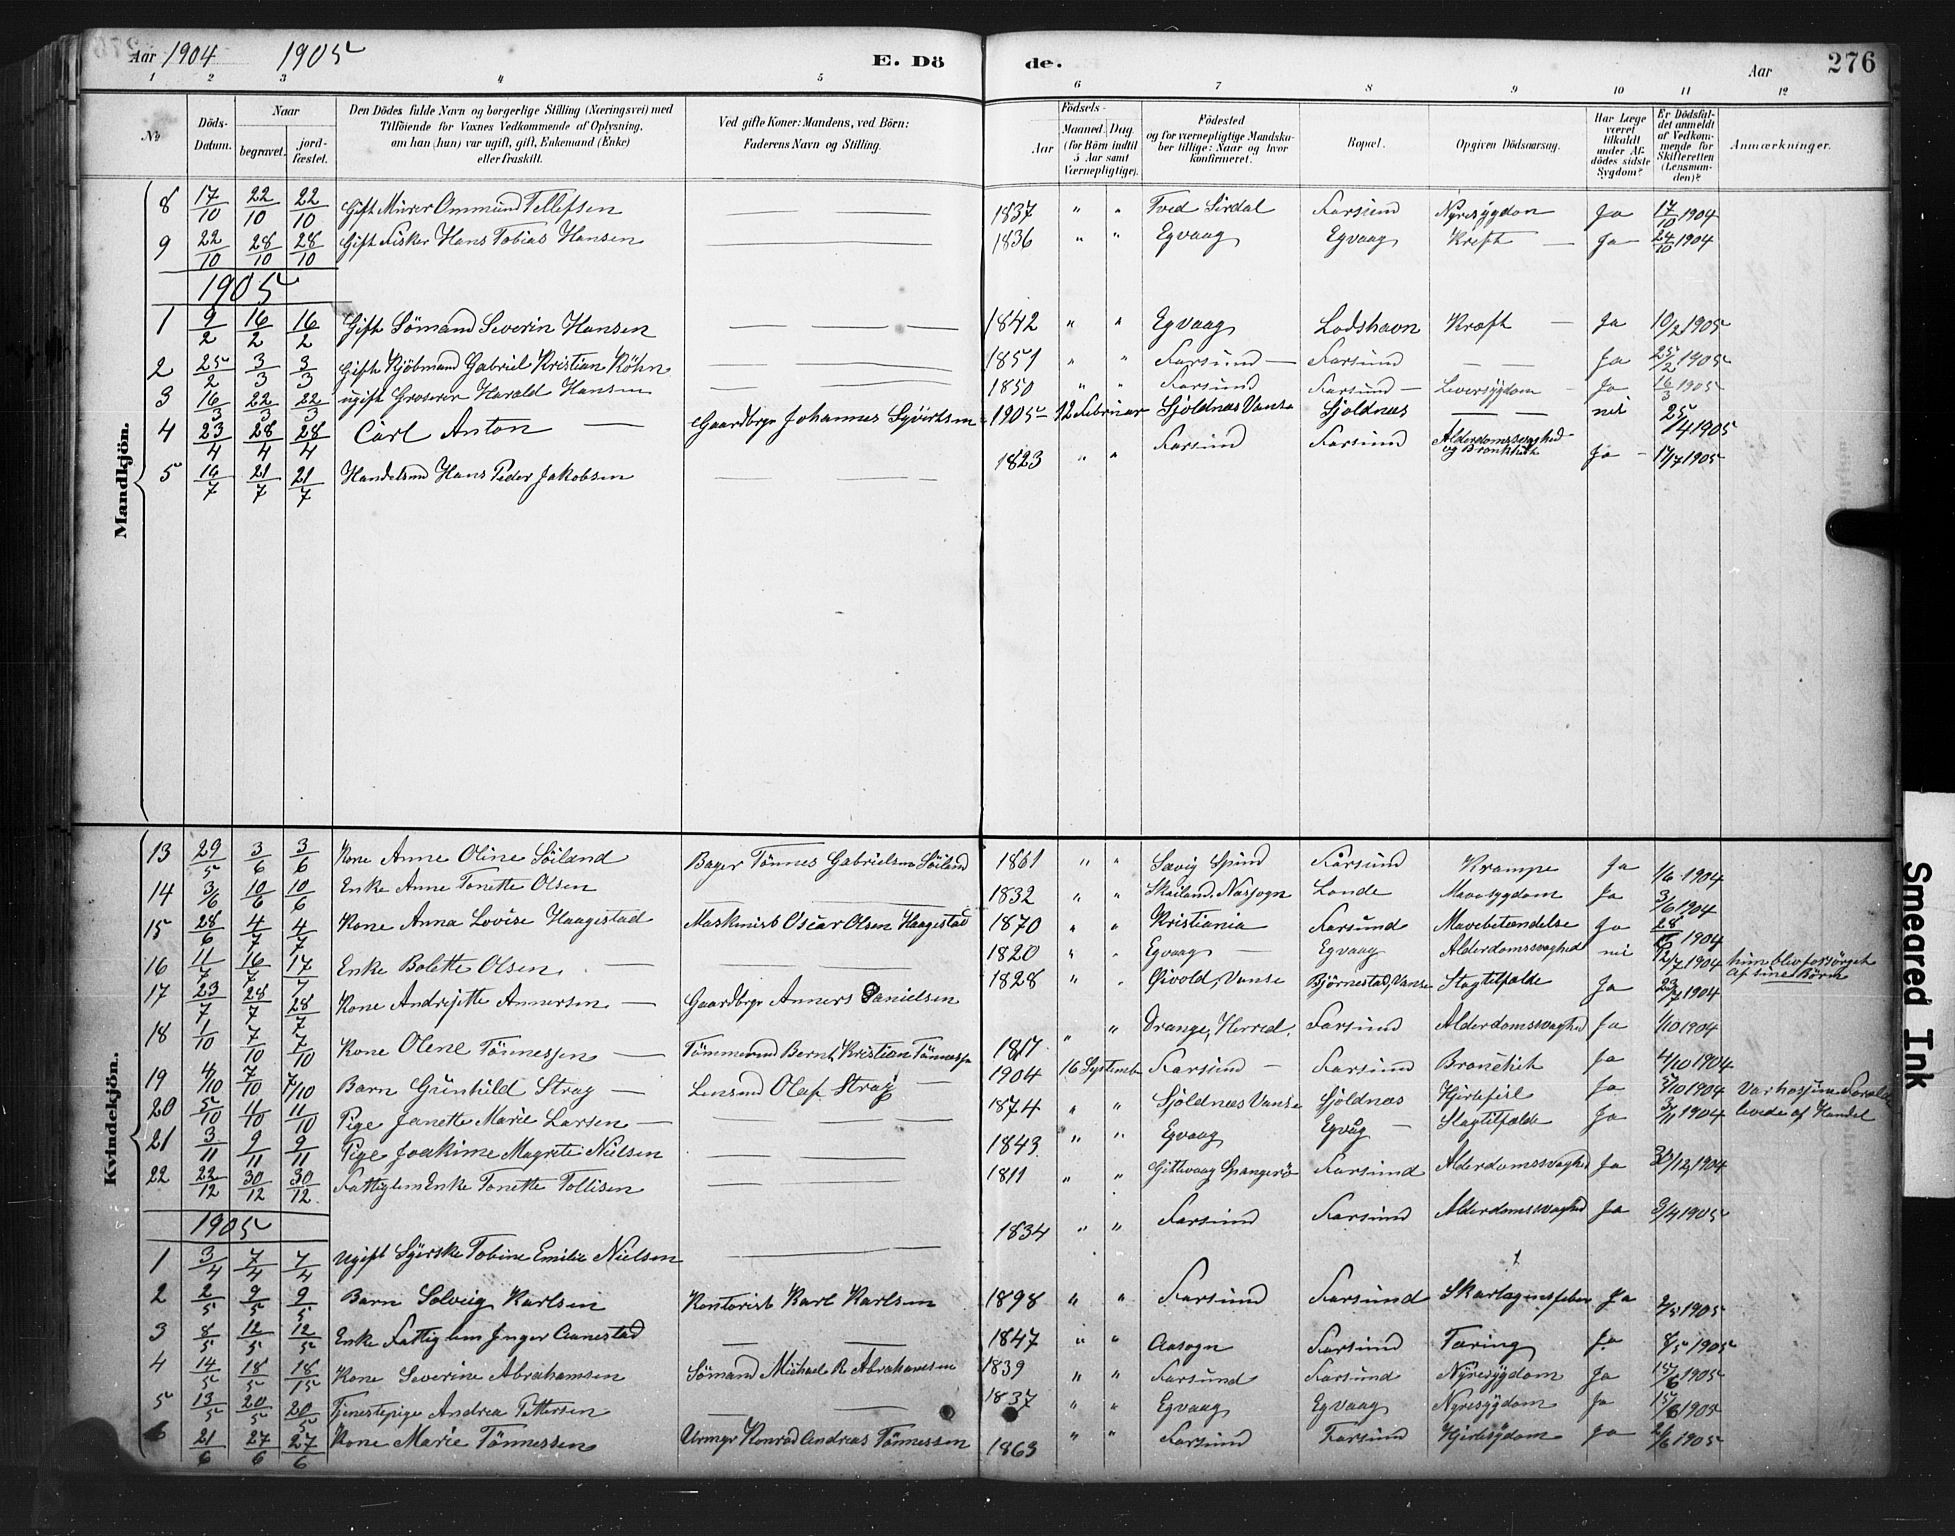 Aar 1904 1905 E. Dö de. Aar 276
1 2 3 4 5 6 7 8 9 10 11 12
No
Döds-Datum.
Naar
begravet.
jord-fæstet.
Den Dödes fulde Navn og borgerlige Stilling (Næringsvei) med
Tilföiende for Voxnes Vedkommende af Oplysning,
om han (hun) var ugift, gift, Enkemand (Enke)
eller fraskilt.
Ved gifte Koner: Mandens, ved Börn:
Faderens Navn og Stilling.
Födsels-
Aar
Maaned. Dag.
(for Börn indtil
5 Aar samt
Værnepligtige).
Födested
og for værnepligtige Mandska-
ber tillige: Naar og hvor
konfirmeret.
Bopæl.
Opgiven Dödsaarsag.
Har Læge
været
tilkaldt
under Af-
dödes sidste
Sygdom?
Er Dödsfal-
det anmeldt
af Vedkom-
mende for
Skifteretten
(Lensman-
den)?
Anmærkninger.
Mandkjön.
8 17/10 22/10 22/10 Gift Murer Ommund Tellefsen — — 1837 " " Tved Sirdal Farsund Nyresygdom Ja 17/10 1904
9 22/10 28/10 28/10 Gift Fisker Hans Tobias Hansen — — 1836 " " Egvaag Egvaag Kreft — Ja 24/10 1904
1905
1 9/2 16/2 16/2 Gift Sömand Severin Hansen — — — 1842 " " Egvaag Lodshavn Kræft — Ja 10/2 1905
2 25/2 3/3 3/3 Gift Kjöbmand Gabriel Kristian Köhn — — 1851 " " Farsund — Farsund — — Ja 25/2 1905
3 16/3 22/3 22/3 ugift Groserer Harald Hansen — — 1850 " " Farsund Farsund — Leversygdom — Ja 16/3 1905
4 23/4 28/4 28/4 Carl Anton — Gaardbrgr Johannes Syvertsen 1905 12 Februar Sjoldnæs Vanse Sjoldnæs — — nei 25/4 1905
5 14/7 21/7 21/7 Handelsmd Hans Peder Jakobsen — — — 1823 " " Farsund Farsund Alderdomssvaghed og Bronkhit Ja — 17/7 1905
Kvindekjön.
13 29/5 3/6 3/6 Kone Anne Oline Söiland Bager Tönnes Gabrielsen Söiland 1861 " " Farsund Krampe Ja 1/6 1904
14 3/6 10/6 10/6 Enke Anne Tonette Olsen — 1832 " " Londe Mavesygdom Ja 3/6 1904
15 28/6 4/7 4/7 Kone Anna Lovise Haagestad Maskinist Oscar Olsen Haagestad 1870 " " Kristiania Farsund Mavebetændelse Ja 28/6 1904
16 11/7 16/7 17/7 Enke Bolette Olsen — — — 1820 " " Egvaag — Egvaag Alderdomssvaghed nei 12/7 1904 hun blev forsörget af sine Börn
17 23/7 28/7 28/7 Kone Andrejette Annersen — Gaardbrgr Anners Danielsen 1828 " " Vanse Björnestad, Vanse Slagtilfælde Ja 23/7 1904
18 1/10 7/10 7/10 Kone Olene Tönnessen — Tömmermd Bernt Kristian Tönnessen 1817 " " Drange, Herred Farsund Alderdomssvaghed Ja 1/10 1904
19 4/10 7/10 7/10 Barn Gunhild Stray — Lensmd Olaf Stray — 1904 16 September Farsund — Farsund Bronchit Ja 4/10 1904
20 5/10 11/10 11/10 Pige Janette Marie Larsen — — 1874 " " Sjöldnæs Vanse Sjöldnæs Hjertefeil Ja 5/10 1904 Var hos sine Forældre
21 3/11 9/11 9/11 Pige Joakime Magrete Nielsen — — 1843 " " Egvaag Egvåg — Slagtilfælde Ja 3/11 1904 levede af Handel
22 22/12 30/12 30/12 Fattiglem Enke Tonette Tollisen — — 1811 " " Gittevaag Spangereid Farsund Alderdomssvaghed Ja /12 1904
1905
1 3/4 7/4 7/4 Ugift Syerske Tobine Emilie Nielsen — — 1834 " " Farsund Farsund Alderdomssvaghed Ja 3/4 1905
2 2/5 9/5 9/5 Barn Solveig Karlsen Kontorist Karl Karlsen 1898 " " Farsund Farsund Skarlagensfeber Ja 2/5 1905
3 8/5 12/5 12/5 Enke Fattiglem Inger Aanestad — — 1847 " " Aasogn Farsund Tæring Ja 8/5 1905
4 14/5 18/5 18/15 Kone Severine Abrahamsen Sömand Michael R Abrahamsen 1839 " " Farsund Farsund Nyresygdom Ja 15/6 1905
5 13/5 20/5 20/5 Tjenestepige Andrea Pettersen — — 1837 " " Egvaag Egvaag Nyresygdom Ja 15/6 1905
6 21/6 27/6 27/6 Kone Marie Tönnessen Urmgr Konrad Andreas Tönnessen 1863 " " Farsund Farsund Hjertesygdom Ja 21/6 1905
Smeared Ink